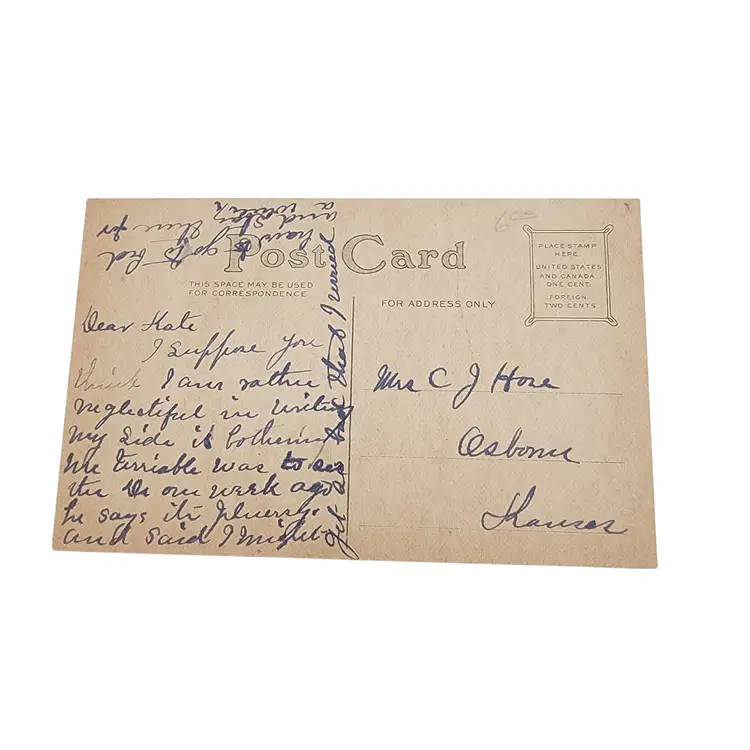 Post Card
THIS SPACE MAY BE USED
FOR CORRESPONDENCE
FOR ADDRESS ONLY
PLACE STAMP
HERE
UNITED STATES
AND CANADA
ONE CENT.
FOREIGN
TWO CENTS
Dear Kate
I suppose you
think I am rather
neglectiful in writing
my side is bothering
me terriable was to see
the Dr one week ago
he says its pluersy.
and said I might
get so bad that I would
have to go to bed
and stay there for
a while
Mrs C J Hose
Osborne
Kansas